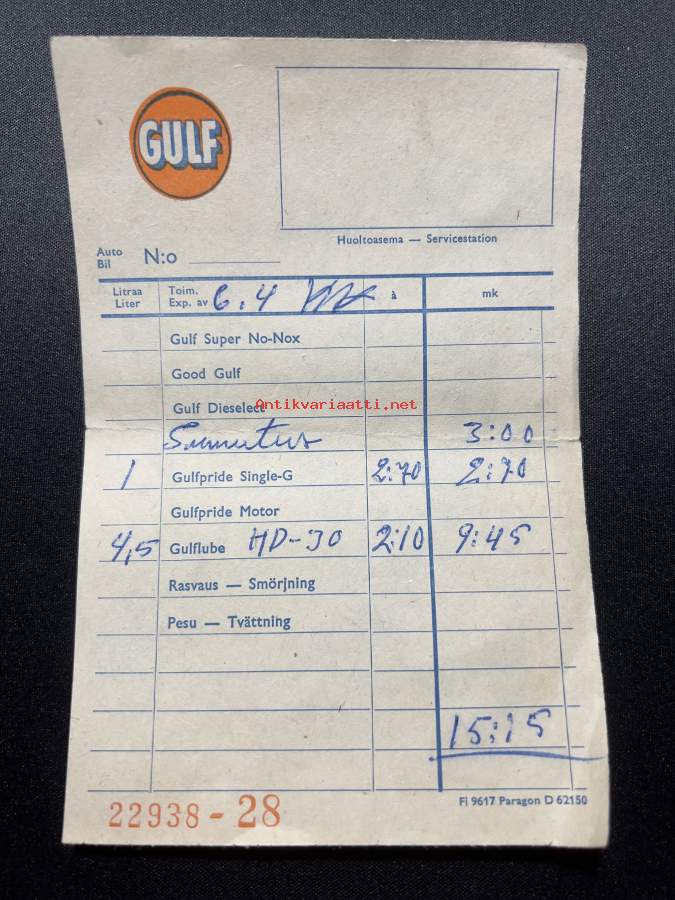 GULF
Huoltoasema — Servicestation
Auto
Bil
N:o
Litraa
Liter
Toim.
Exp. av
6.4
à
mk
Gulf Super No-Nox
Good Gulf
Gulf Dieselect
Antikvariaatti.net
Sumutus 3:00
1 Gulfpride Single-G 2:70 2:70
Gulfpride Motor
4,5 Gulflube HD-30 2:10 9:45
Rasvaus — Smörjning
Pesu — Tvättning
15:15
22938 - 28
Fi 9617 Paragon D 62150